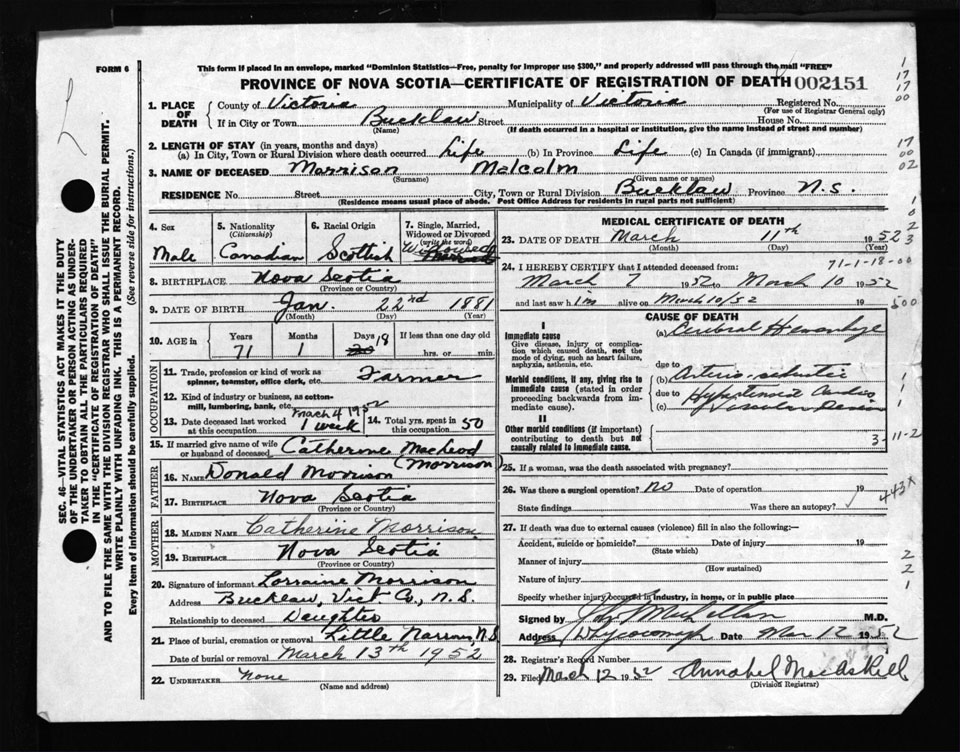 FORM 6
This form if placed in an envelope, marked "Dominion Statistics—Free, penalty for improper use $300," and properly addressed will pass through the mail "FREE"
PROVINCE OF NOVA SCOTIA—CERTIFICATE OF REGISTRATION OF DEATH 002151
1. PLACE OF DEATH
County of Victoria Municipality of Victoria Registered No.
(For use of Registrar General only)
If in City or Town Bucklaw Street House No.
(Name) (If death occurred in a hospital or institution, give the name instead of street and number)
2. LENGTH OF STAY (in years, months and days)
(a) In City, Town or Rural Division where death occurred Life (b) In Province Life (c) In Canada (if immigrant)
3. NAME OF DECEASED Morrison Malcolm
(Surname) (Given name or names)
RESIDENCE No. Street City, Town or Rural Division Bucklaw Province N.S.
(Residence means usual place of abode. Post Office Address for residents in rural parts not sufficient)
4. Sex
Male
5. Nationality
(Citizenship)
Canadian
6. Racial Origin
Scottish
7. Single, Married, Widowed or Divorced
(write the word)
Widowed
8. BIRTHPLACE Nova Scotia
(Province or Country)
9. DATE OF BIRTH Jan. 22nd 1881
(Month) (Day) (Year)
10. AGE in
Years 71
Months 1
Days 18
If less than one day old
hrs. or min.
OCCUPATION
11. Trade, profession or kind of work as spinner, teamster, office clerk, etc. Farmer
12. Kind of industry or business, as cotton-mill, lumbering, bank, etc.
13. Date deceased last worked at this occupation March 4 1952 1 week
14. Total yrs. spent in this occupation 50
15. If married give name of wife or husband of deceased Catherine MacLeod
(Morrison)
FATHER
16. NAME Donald Morrison
17. BIRTHPLACE Nova Scotia
MOTHER
18. MAIDEN NAME Catherine Morrison
19. BIRTHPLACE Nova Scotia
(Province or Country)
20. Signature of informant Lorraine Morrison
Address Bucklaw, Vict. Co., N.S.
Relationship to deceased Daughter
21. Place of burial, cremation or removal Little Narrows N.S.
Date of burial or removal March 13th 1952
22. UNDERTAKER None
(Name and address)
MEDICAL CERTIFICATE OF DEATH
23. DATE OF DEATH March 11th 1952
(Month) (Day) (Year)
71-1-18-00
24. I HEREBY CERTIFY that I attended deceased from:
March 7 1952 to March 10 1952
and last saw him alive on March 10/52 19
CAUSE OF DEATH
I
Immediate cause
Give disease, injury or complication which caused death, not the mode of dying, such as heart failure, asphyxia, asthenia, etc.
(a) Cerebral Hemorrhage
due to
Morbid conditions, if any, giving rise to immediate cause (stated in order proceeding backwards from immediate cause).
(b) Arterio-sclerotic
due to Hypertensive Cardio
(c) Vascular Disease
II
Other morbid conditions (if important) contributing to death but not causally related to immediate cause.
3-11-2
25. If a woman, was the death associated with pregnancy?
26. Was there a surgical operation? No Date of operation 19
State findings Was there an autopsy?
443X
27. If death was due to external causes (violence) fill in also the following:—
Accident, suicide or homicide? Date of injury 19
(State which)
Manner of injury
(How sustained)
Nature of injury
Specify whether injury occurred in industry, in home, or in public place
Signed by MacLellan M.D.
Address Whycocomagh Date Mar 12 1952
28. Registrar's Record Number
29. Filed March 12 1952 Annabel MacAskill
(Division Registrar)
SEC. 46—VITAL STATISTICS ACT MAKES IT THE DUTY OF THE UNDERTAKER OR PERSON ACTING AS UNDERTAKER TO OBTAIN ALL THE PARTICULARS REQUIRED IN THE "CERTIFICATE OF REGISTRATION OF DEATH" AND TO FILE THE SAME WITH THE DIVISION REGISTRAR WHO SHALL ISSUE THE BURIAL PERMIT.
WRITE PLAINLY WITH UNFADING INK. THIS IS A PERMANENT RECORD.
Every item of information should be carefully supplied. (See reverse side for instructions.)